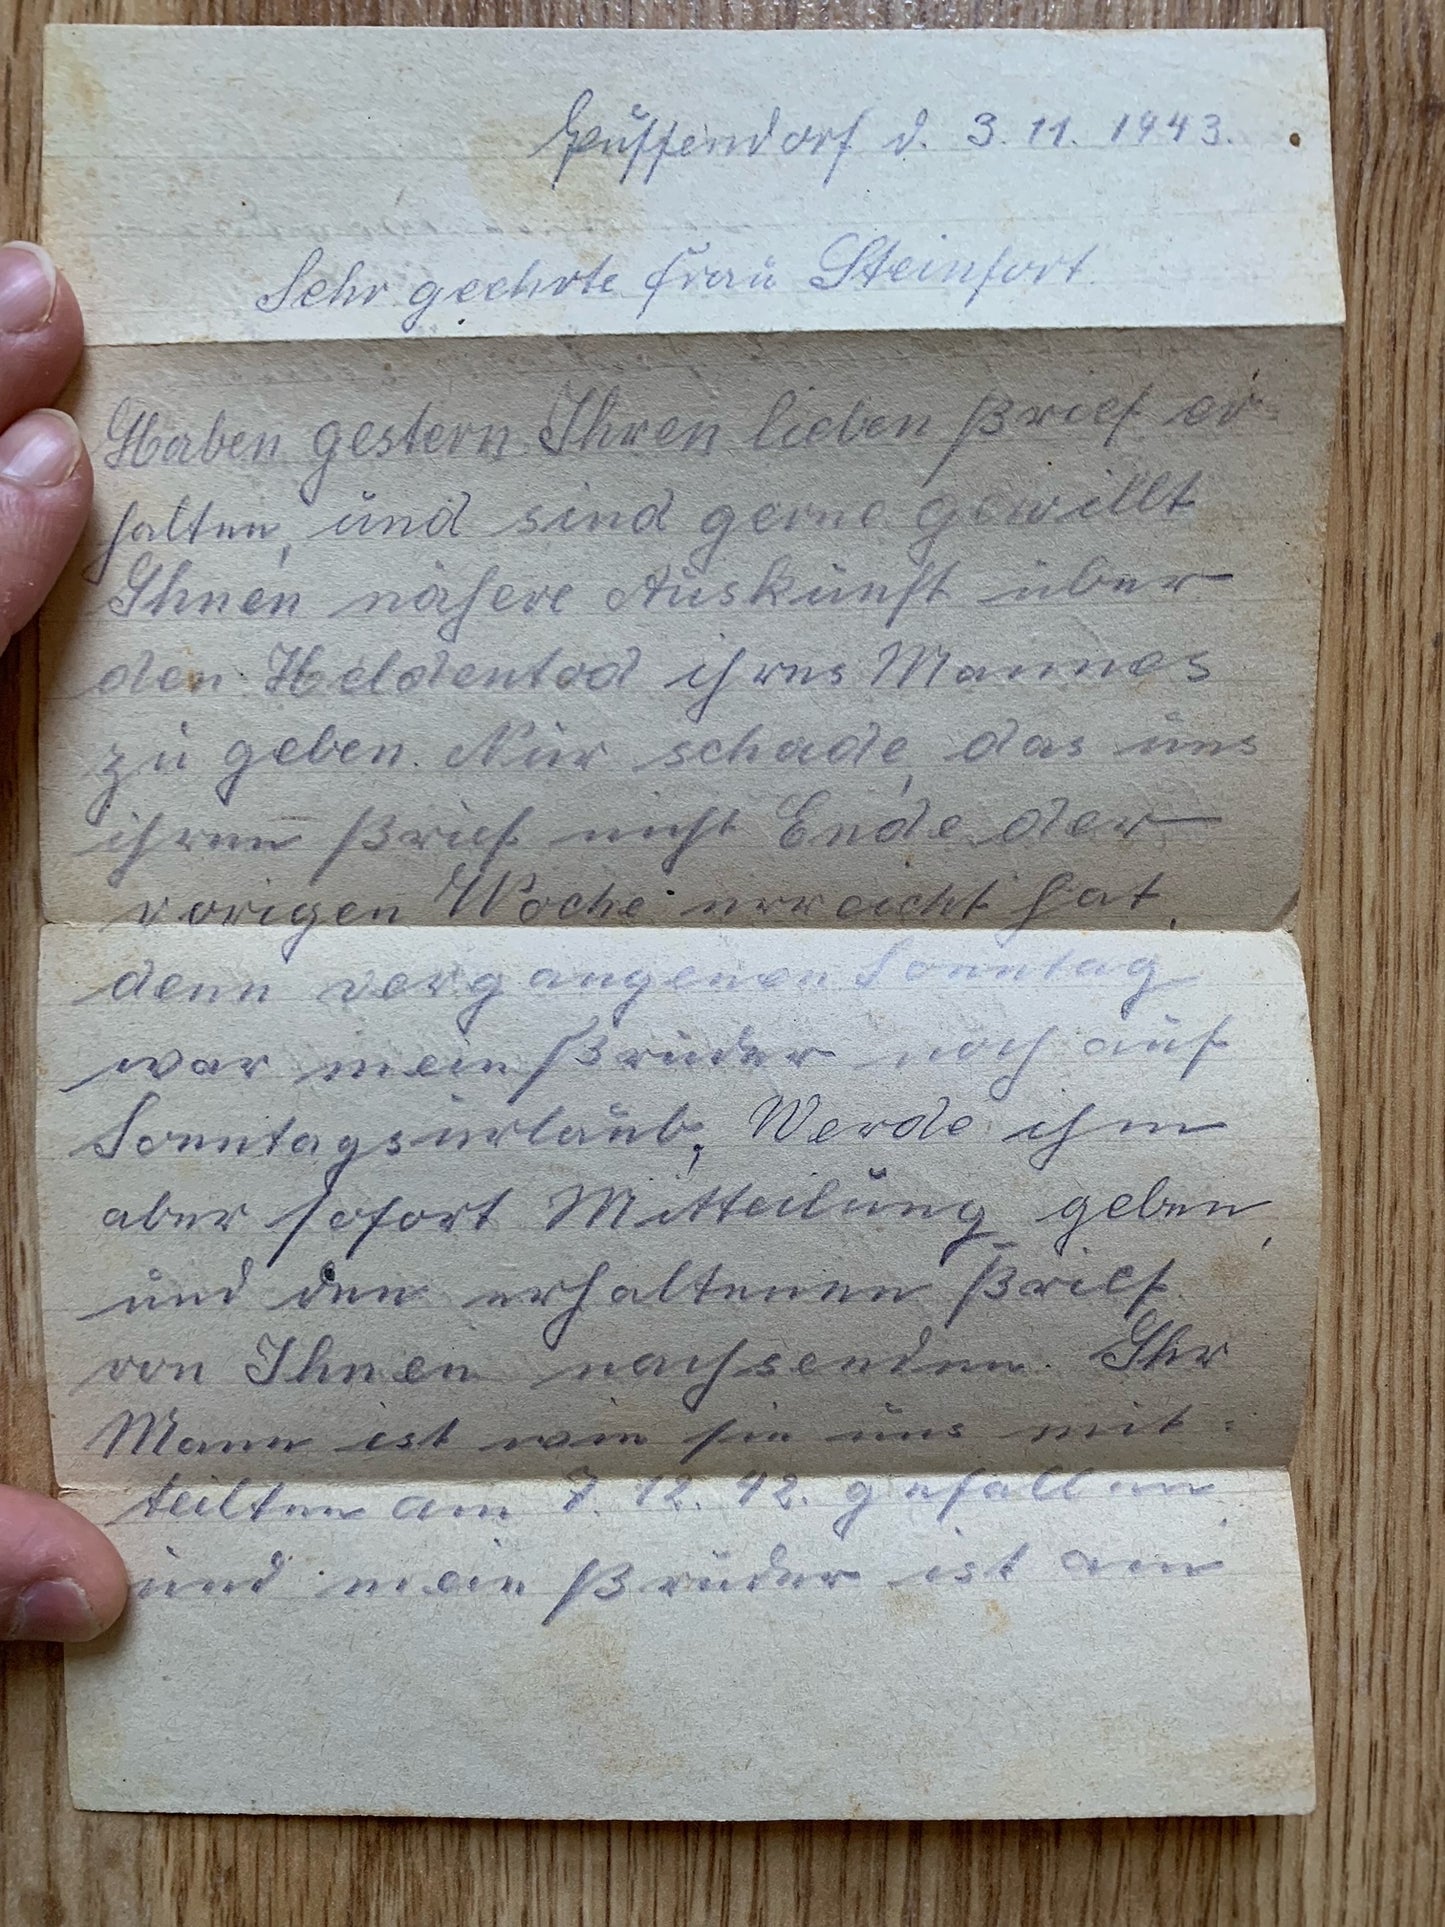 Puffendorf d. 3. 11. 1943.
Sehr geehrte Frau Steinfort.
Haben gestern Ihren lieben Brief er-
halten, und sind gerne gewillt
Ihnen nähere Auskunft über
den Heldentod ihres Mannes
zu geben. Nur schade, das uns
ihren Brief nicht Ende der
vorigen Woche erreicht hat,
denn vergangenen Sonntag
war mein Bruder noch auf
Sonntagsurlaub, Werde ihm
aber sofort Mitteilung geben,
und den erhaltenen Brief
von Ihnen nachsenden. Ihr
Mann ist wie sie uns mit-
teilten am 7. 12. 42. gefallen
und mein Bruder ist am